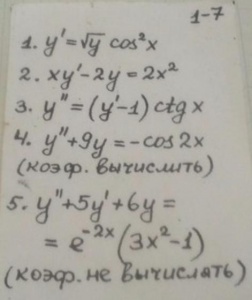 1-7
1. y' = √y cos²x
2. xy' - 2y = 2x²
3. y'' = (y' - 1) ctg x
4. y'' + 9y = -cos 2x
(коэф. вычислить)
5. y'' + 5y' + 6y =
= e⁻²ˣ (3x² - 1)
(коэф. не вычислять)